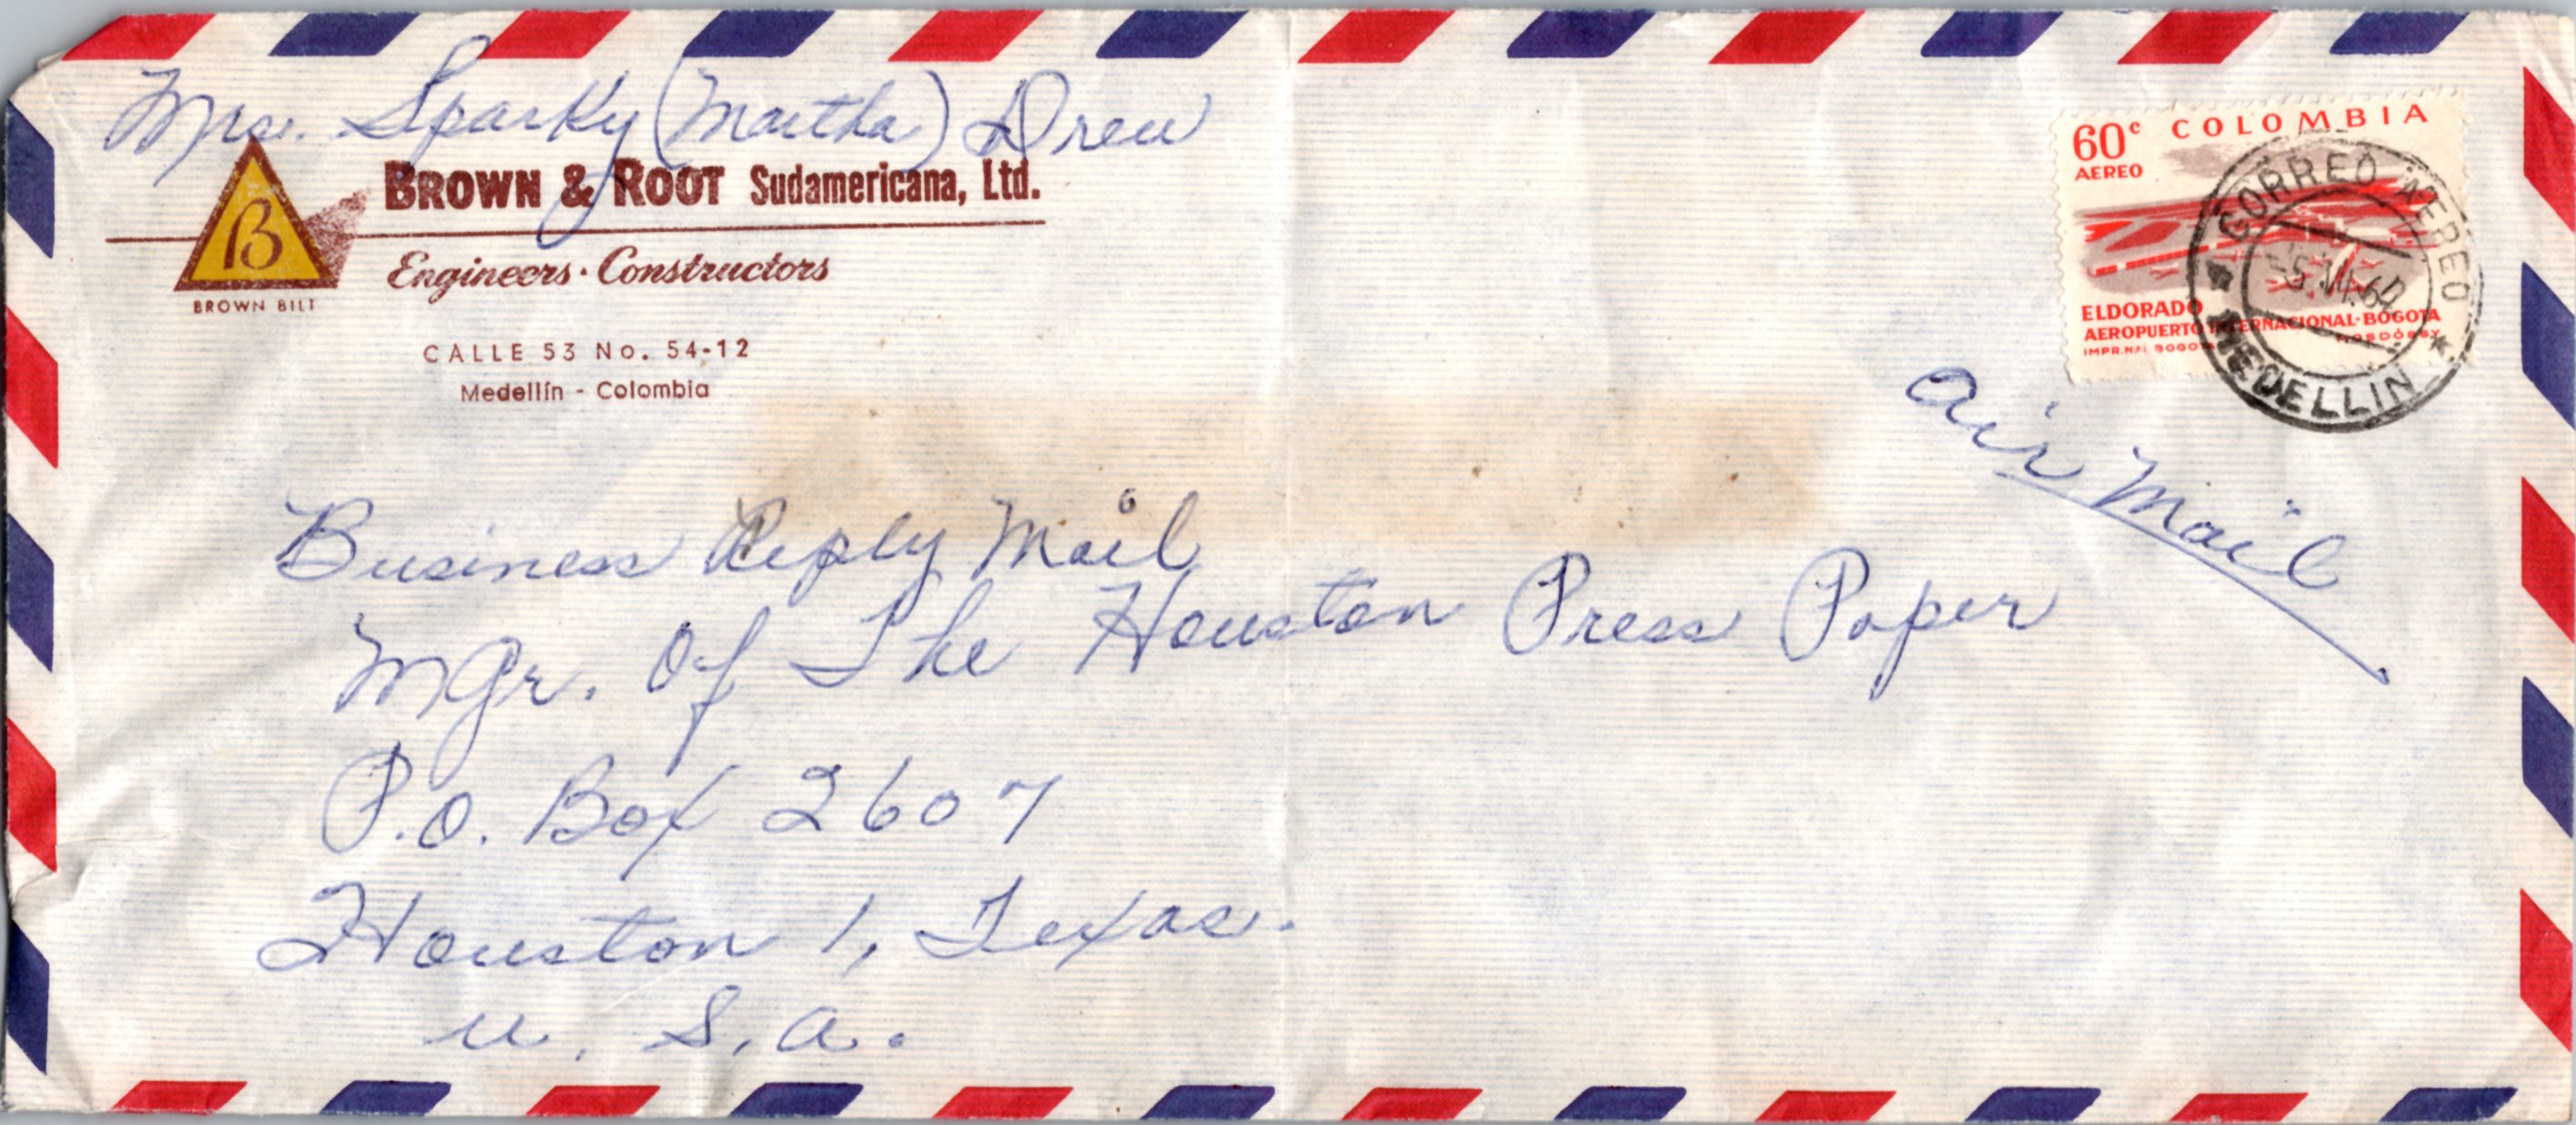 Mrs. Sparky (Martha) Drew
BROWN & ROOT Sudamericana, Ltd.
B
Engineers · Constructors
BROWN BILT
CALLE 53 No. 54-12
Medellín - Colombia
60c COLOMBIA
AEREO
CORREO AEREO
ELDORADO
AEROPUERTO INTERNACIONAL·BOGOTA
IMPR.NAL BOGOTA
MEDELLIN
Air Mail
Business Reply Mail
Mgr. Of The Houston Press Paper
P.O. Box 2607
Houston 1, Texas.
U. S. A.